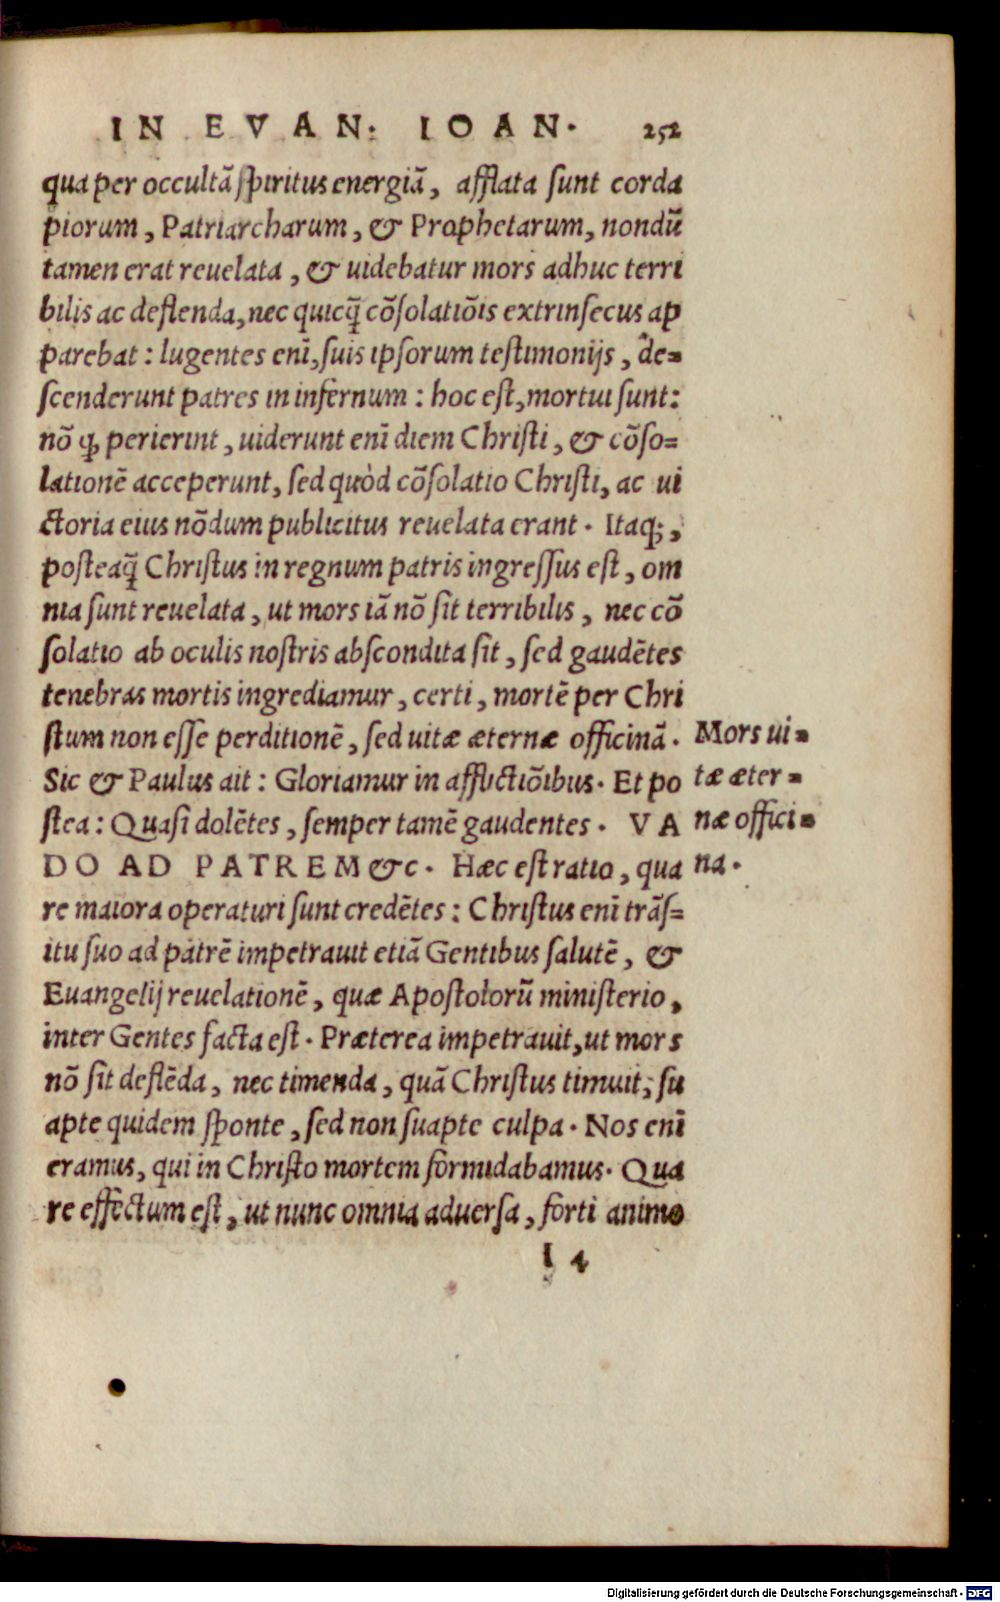 IN EVAN: IOAN. 252
qua per occultā spiritus energiā, afflata sunt corda
piorum, Patriarcharum, & Prophetarum, nondū
tamen erat reuelata, & uidebatur mors adhuc terri
bilis ac deflenda, nec quicq̃ cōsolatiōis extrinsecus ap
parebat: lugentes enī, suis ipsorum testimonijs, de=
scenderunt patres in infernum: hoc est, mortui sunt:
nō ꝙ perierint, uiderunt enī diem Christi, & cōso=
lationē acceperunt, sed quòd cōsolatio Christi, ac ui
ctoria eius nōdum publicitus reuelata erant. Itaq;,
posteaq̃ Christus in regnum patris ingressus est, om
nia sunt reuelata, ut mors iā nō sit terribilis, nec cō
solatio ab oculis nostris abscondita sit, sed gaudētes
tenebras mortis ingrediamur, certi, mortē per Chri
stum non esse perditionē, sed uitæ æternæ officinā.
Sic & Paulus ait: Gloriamur in afflictiōibus. Et po
stea: Quasi dolētes, semper tamē gaudentes. VA
DO AD PATREM &c. Hæc est ratio, qua
re maiora operaturi sunt credētes: Christus enī trās=
itu suo ad patrē impetrauit etiā Gentibus salutē, &
Euangelij reuelationē, quæ Apostolorū ministerio,
inter Gentes facta est. Præterea impetrauit, ut mors
nō sit deflēda, nec timenda, quā Christus timuit, su
apte quidem sponte, sed non suapte culpa. Nos enī
eramus, qui in Christo mortem formidabamus. Qua
re effectum est, ut nunc omnia aduersa, forti animo
I 4
Mors ui=
tæ æter=
næ offici=
na.
Digitalisierung gefördert durch die Deutsche Forschungsgemeinschaft - DFG